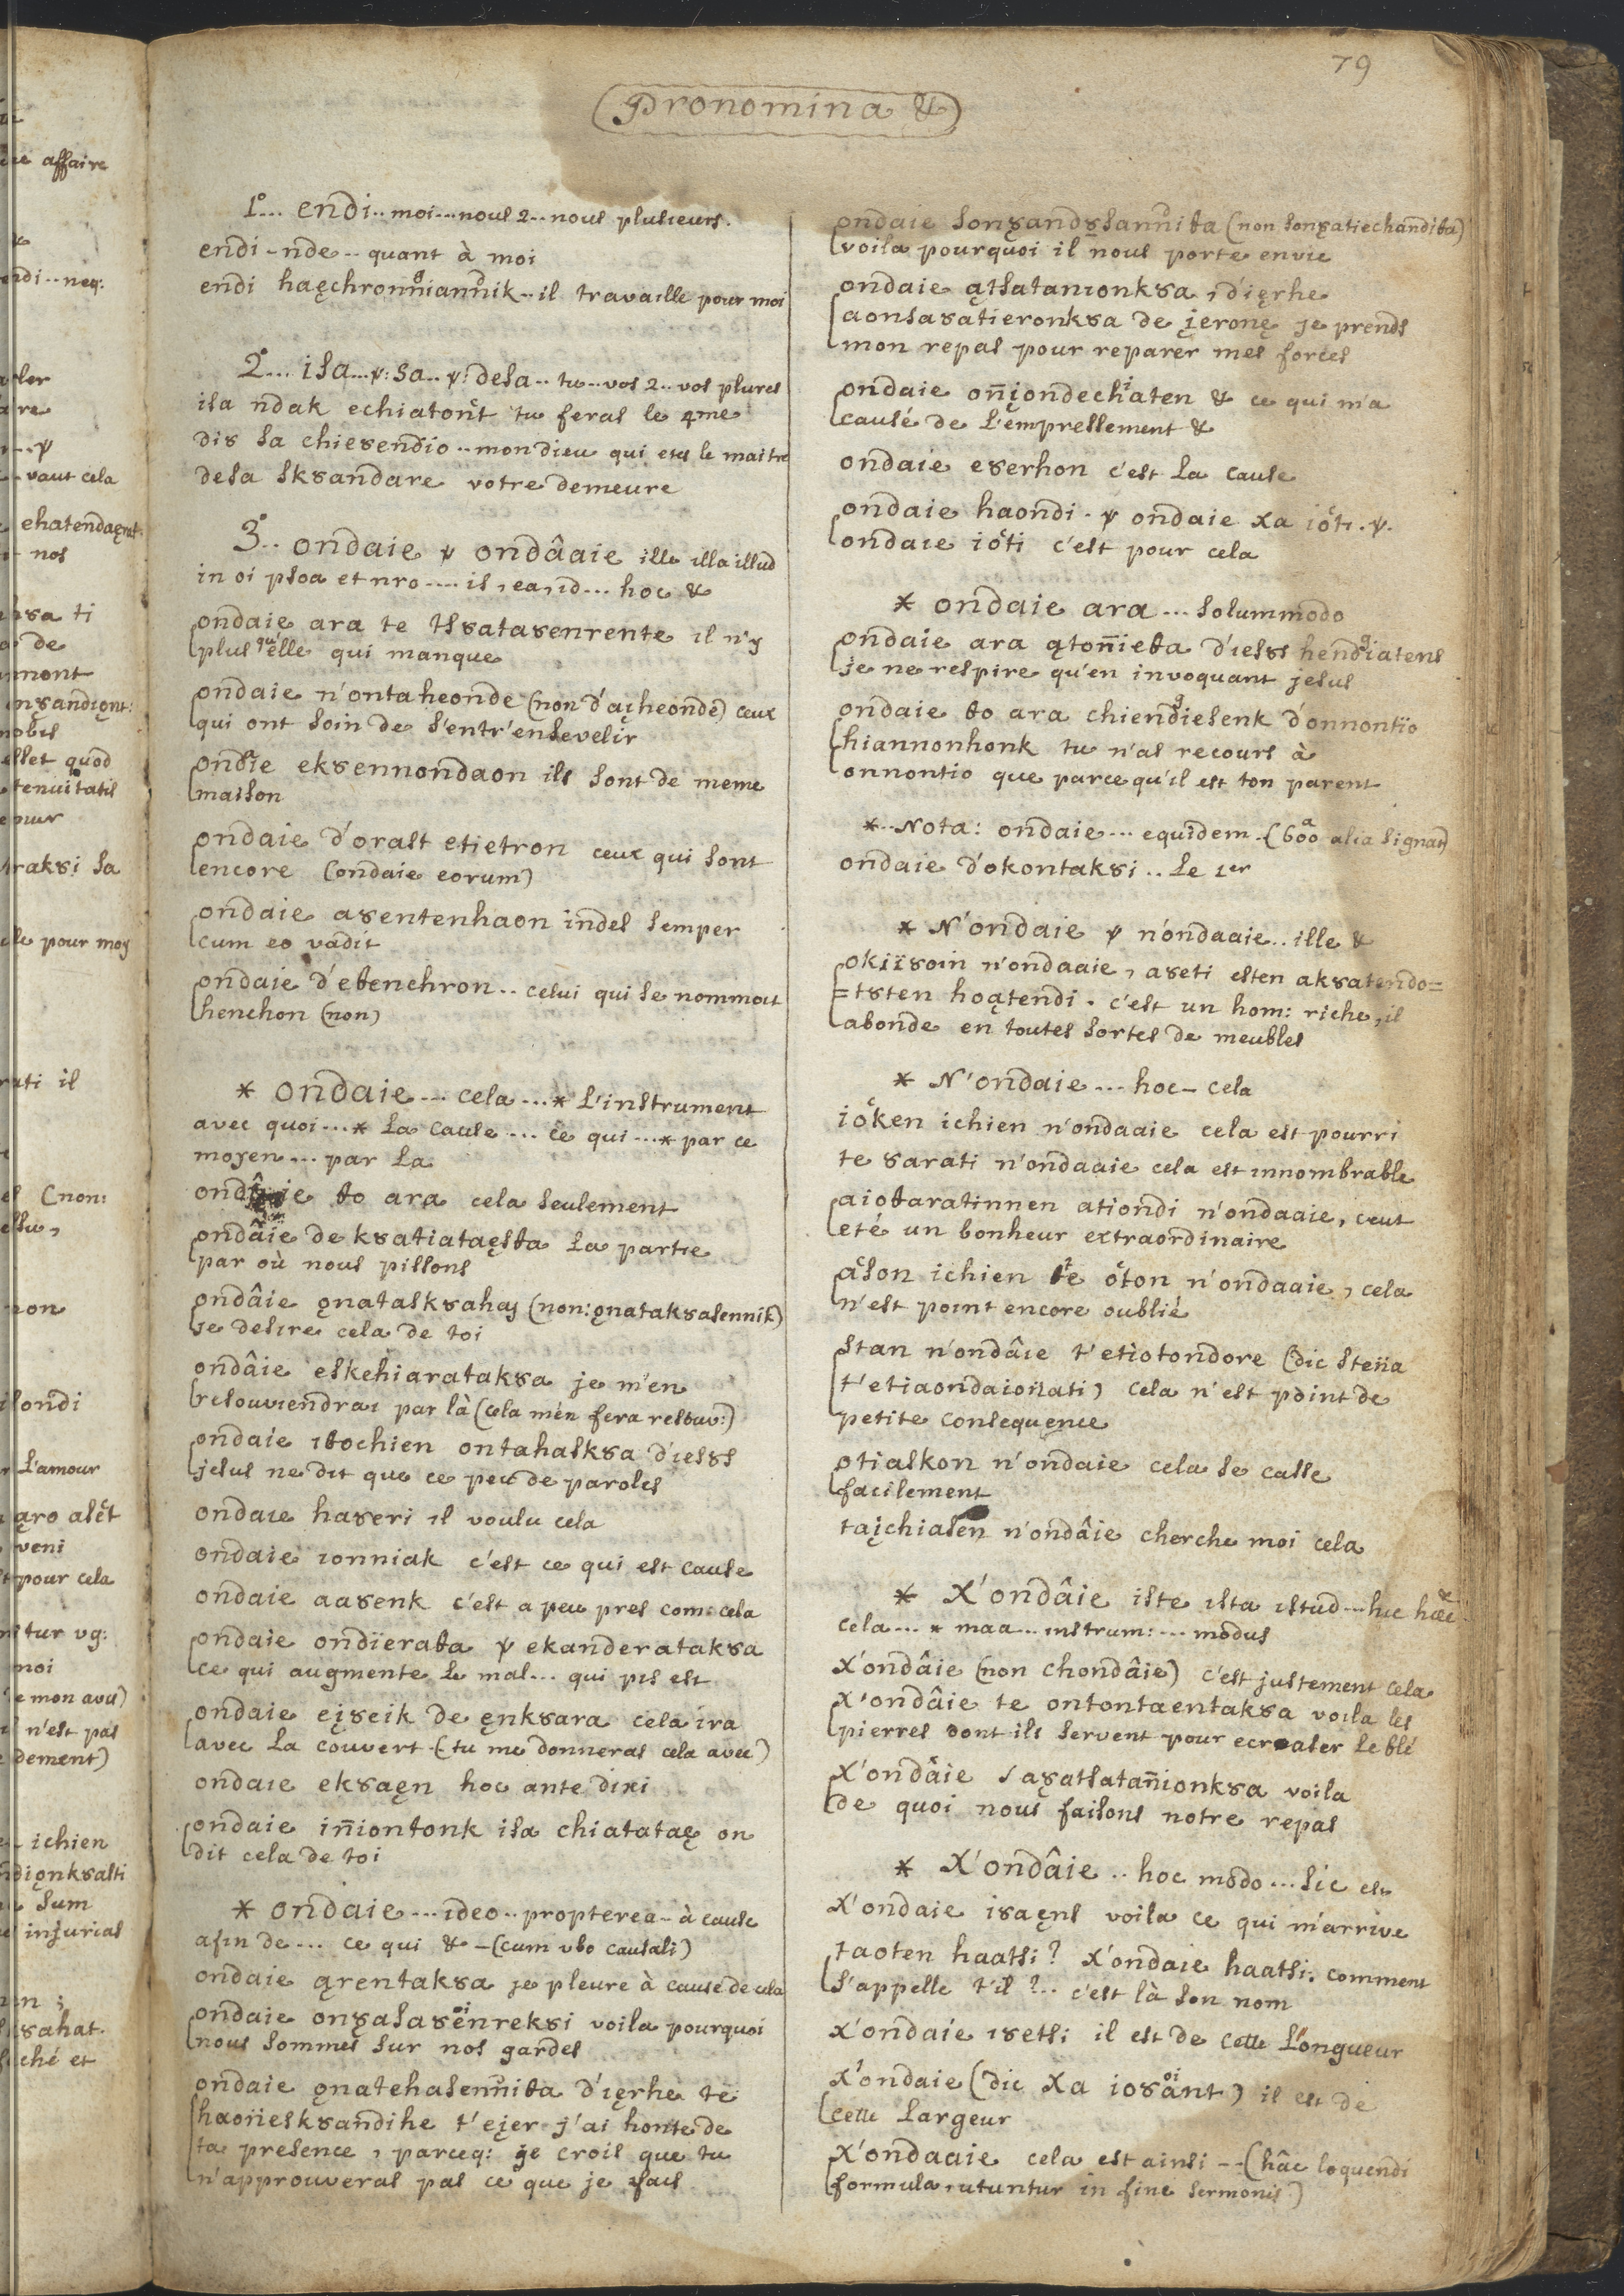 79
Pronomina &
1º... endi.. moi... nous 2.. nous plusieurs.
endi-nde.. quant à moi
endi haęchronniannik.. il travaille pour moi
2º... isa... ỽ: sa.. ỽ: desa.. tu.. vos 2.. vos plures
isa ndak echiatont tu feras le 4me
dis sa chieȣendio.. mon dieu qui etes le maitre
desa skȣandare votre demeure
3º.. ondaie ỽ ondâaie ille illa illud
in oi psoa et nro.... is, ea, id... hoc &
ondaie ara te tsȣataȣenrente il n'y
plus qu'elle qui manque
ondaie n'ontaheonde (non d'aįheonde) ceux
qui ont soin de s'entr'ensevelir
ondaie ekȣennondaon ils sont de meme
maison
ondaie d'orast etietron ceux qui sont
encore (ondaie eorum)
ondaie aȣentenhaon indes semper
cum eo vadit
ondaie d'eθenchron.. celui qui se nommoit
henchon (non)
* ondaie... cela...* L'instrument
avec quoi...* La cause... ce qui...* par ce
moyen... par La
ondâie θo ara cela seulement
ondâie de kȣatiataęsθa la partie
par où nous pissons
ondâie ǫnataskȣahaȷ (non: ǫnatakȣasennik)
je desire cela de toi
ondâie eskehiaratakȣa je m'en
resouviendrai par là (cela m'en fera resouv:)
ondaie iθochien ontahaskȣa d'iesȣs
jesus ne dit que ce peu de paroles
ondaie haȣeri il voulu cela
ondaie ionniak c'est ce qui est cause
ondaie aaȣenk c'est a peu pres com: cela
ondaie ondïeraθa ỽ ekanderatakȣa
ce qui augmente le mal... qui pis est
ondaie eįȣeik de ęnkȣara cela ira
avec la couvert. (tu me donneras cela avec)
ondaie ekȣaęn hoc ante dixi
ondaie iñiontonk isa chiatataę on
dit cela de toi
* ondaie... ideo.. propterea - à cause
afin de... ce qui & - (cum vbo causali)
ondaie ąrentakȣa je pleure à cause de cela
ondaie onȣasaȣenrekȣi voila pourquoi
nous sommes sur nos gardes
ondaie ǫnatehasenniθa d'ięrhe te
haoñeskȣandihe t'eįer j'ai honte de
ta presence, parceq: je crois que tu
n'approuveras pas ce que je fais
ondaie sonȣandȣsanniθa (non sonȣatiechandiθa)
voila pourquoi il nous porte envie
ondaie ątsatanionkȣa, d'ięrhe
aonsaȣatieronkȣa de įeronę je prends
mon repas pour reparer mes forces
ondaie oñįondechaten & ce qui m'a
causé de L'empressement &
ondaie eȣerhon c'est La cause
ondaie haondi. ỽ ondaie xa ioti. ỽ.
ondaie ioti c'est pour cela
* ondaie ara... solummodo
ondaie ara ątoñieθa d'iesȣs hendiatens
je ne respire qu'en invoquant jesus
ondaie θo ara chiendiesenk d'onnontïo
hiannonhonk tu n'as recours à
onnontio que parcequ'il est ton parent
*.. Nota: ondaie... equidem. (600 alia signat)
ondaie d'okontakȣi.. le 1er
* N'ondaie ỽ n'ondaaie.. ille &
okiïȣoin n'ondaaie, aȣeti esten akȣatendo=
=tȣten hoątendi. c'est un hom: riche, il
abonde en toutes sortes de meubles
* N'ondaie... hoc - cela
ioken ichien n'ondaaie cela est pourri
te ȣarati n'ondaaie cela est innombrable
aioθaratinnen ationdi n'ondaaie, ceut
eté un bonheur extraordinaire
ason ichien te oton n'ondaaie, cela
n'est point encore oublié
stan n'ondâie t'etiotondore (dic steñia
t'etiaondaioȣati) cela n'est point de
petite consequence
otiaskon n'ondaie cela se casse
facilement
taįchiasen n'ondâie cherche moi cela
* X'ondâie iste ista istud... hic hæc
cela... * maa... instrum:... modus
X'ondâie (non chondâie) c'est justement cela
X'ondâie te ontontaentakȣa voila les
pierres dont ils servent pour ecraser le blé
X'ondâie saȣatsatañionkȣa voila
de quoi nous faisons notre repas
* X'ondâie.. hoc modo... sic est
X'ondaie isaęns voila ce qui m'arrive
taoten haatsi? X'ondaie haatsi. comment
s'appelle t'il?.. c'est là son nom
X'ondaie iȣetsi il est de cette Longueur
X'ondaie (dic Xa ioȣant) il est de
cette Largeur
X'ondaaie cela est ainsi -- (hâc loquendi
formula, utuntur in fine sermonis)